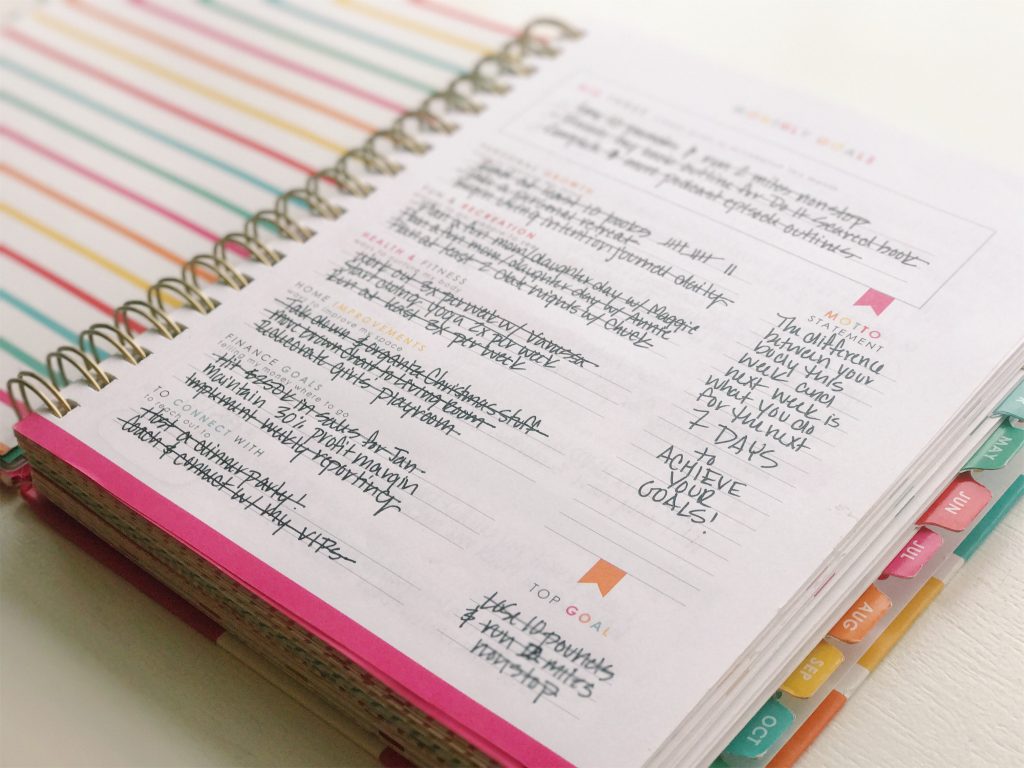 MONTHLY GOALS
BIG THREE
Lose 10 pounds & run 2 miles nonstop
book outline for Do It Scared book
Complete & more podcast episode outlines
PERSONAL GROWTH
Read at least 10 books
Plan a personal retreat
Begin using intention journal daily
FUN & RECREATION
Plan a fun mom/daughter day w/ Maggie
Plan a fun mom/daughter day w/ Annie
Plan at least 2 date nights w/ Chuck
HEALTH & FITNESS
ways to my body
Work out 3x per week w/ Vanessa
Start doing yoga 2x per week
Run at least 3x per week
HOME IMPROVEMENTS
ways to improve my space
Take down & organize Christmas stuff
Move brown chair to living room
Redecorate girls playroom
FINANCE GOALS
telling my money where to go
Hit $250k in sales for Jan.
Maintain 30% profit margin
Implement weekly reporting
TO CONNECT WITH
to reach out to
Host a dinner party!
Reach & connect w/ my VIPs
MOTTO
STATEMENT
The difference
between your
body this
week and
next week is
what you do
for the next
7 DAYS
to
ACHIEVE
YOUR
GOALS!
TOP GOAL
Lose 10 pounds
& run 2 miles
nonstop
MAY
JUN
JUL
AUG
SEP
OCT